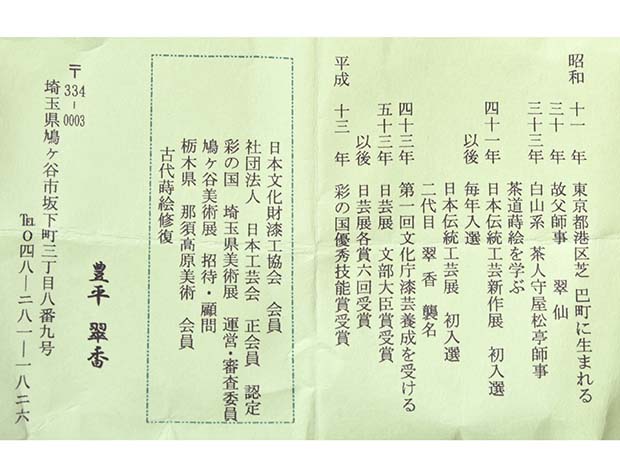 昭和 十一 年 東京都港区芝 巴町に生まれる
三十 年 故父師事 翠仙
三十三年 白山系 茶人守屋松亭師事
茶道蒔絵を学ぶ
四十一年 日本伝統工芸新作展 初入選
以後 毎年入選
日本伝統工芸展 初入選
二代目 翠香 襲名
四十三年 第一回文化庁漆芸養成を受ける
五十三年 日芸展 文部大臣賞受賞
以後 日芸展各賞六回受賞
平成 十三 年 彩の国優秀技能賞受賞
日本文化財漆工協会 会員
社団法人 日本工芸会 正会員 認定
彩の国 埼玉県美術展 運営・審査委員
鳩ヶ谷美術展 招待・顧問
栃木県 那須高原美術 会員
古代蒔絵修復
豊平 翠香
〒334-0003
埼玉県鳩ヶ谷市坂下町三丁目八番九号
℡〇四八―二八一―一八二六